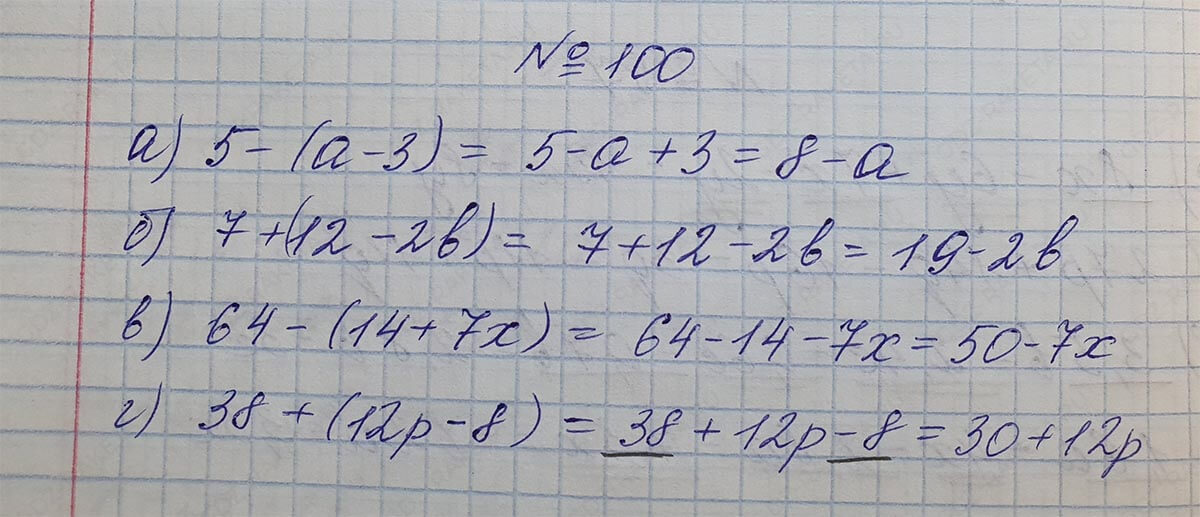 № 100
а) 5 - (a - 3) = 5 - a + 3 = 8 - a
б) 7 + (12 - 2b) = 7 + 12 - 2b = 19 - 2b
в) 64 - (14 + 7x) = 64 - 14 - 7x = 50 - 7x
г) 38 + (12p - 8) = 38 + 12p - 8 = 30 + 12p